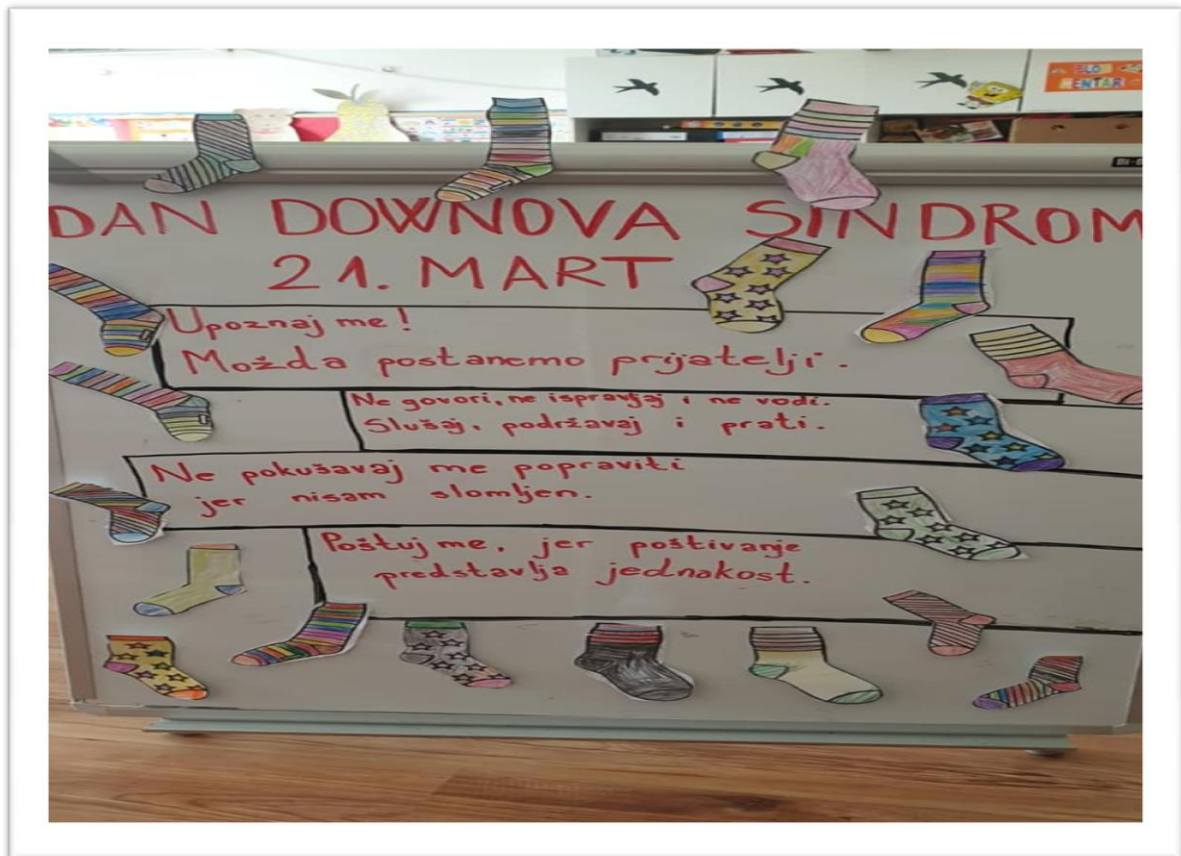 DAN DOWNOVA SINDROM
21. MART
Upoznaj me!
Možda postanemo prijatelji.
Ne govori, ne ispravljaj i ne vodi.
Slušaj, podržavaj i prati.
Ne pokušavaj me popraviti
jer nisam slomljen.
Poštuj me, jer poštivanje
predstavlja jednakost.